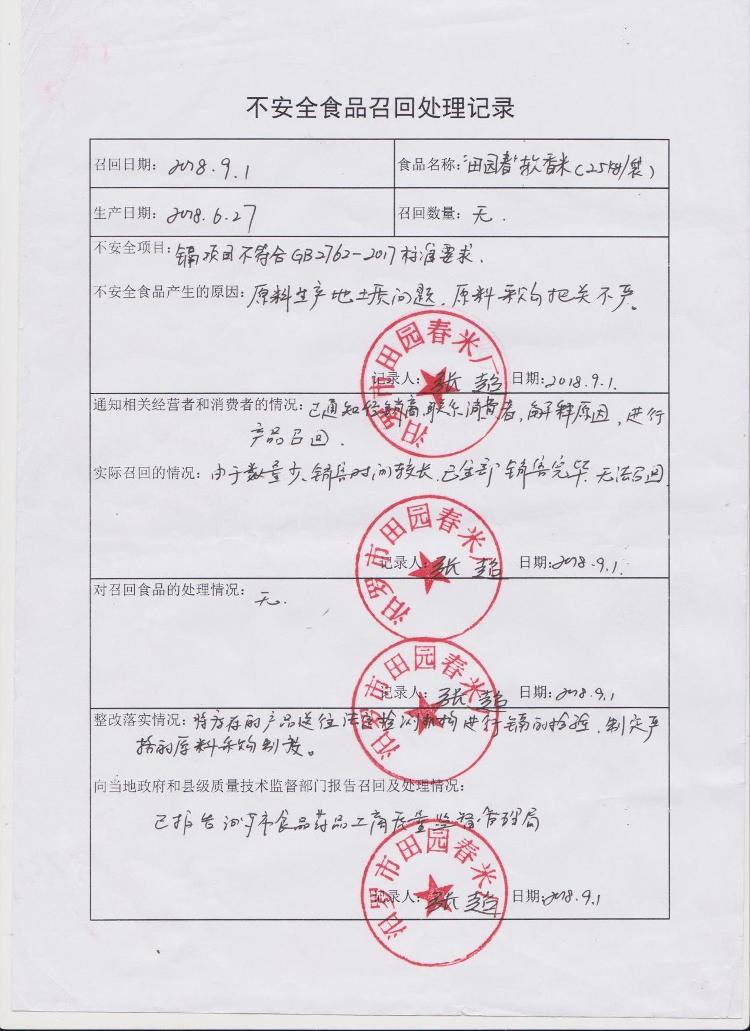 不安全食品召回处理记录
召回日期：2018.9.1 食品名称："田园春"软香米（25kg/袋）
生产日期：2018.6.27 召回数量：无.
不安全项目：镉项目不符合GB2762-2017标准要求.
不安全食品产生的原因：原料生产地土质问题. 原料采购把关不严。
记录人：张 日期：2018.9.1.
汨罗市田园春米厂
通知相关经营者和消费者的情况：已通知经销商,联系消费者,解释原因,进行
产品召回.
实际召回的情况：由于数量少、销售时间较长.已全部销售完毕.无法召回
记录人：张 日期：2018.9.1.
汨罗市田园春米厂
对召回食品的处理情况：无.
记录人：张 日期：2018.9.1
汨罗市田园春米厂
整改落实情况：将库存的产品送往法定检测机构进行镉的检验.制定严
格的原料采购制度。
向当地政府和县级质量技术监督部门报告召回及处理情况：
已报告汨罗市食品药品工商质量监督管理局
记录人：张 日期：2018.9.1
汨罗市田园春米厂